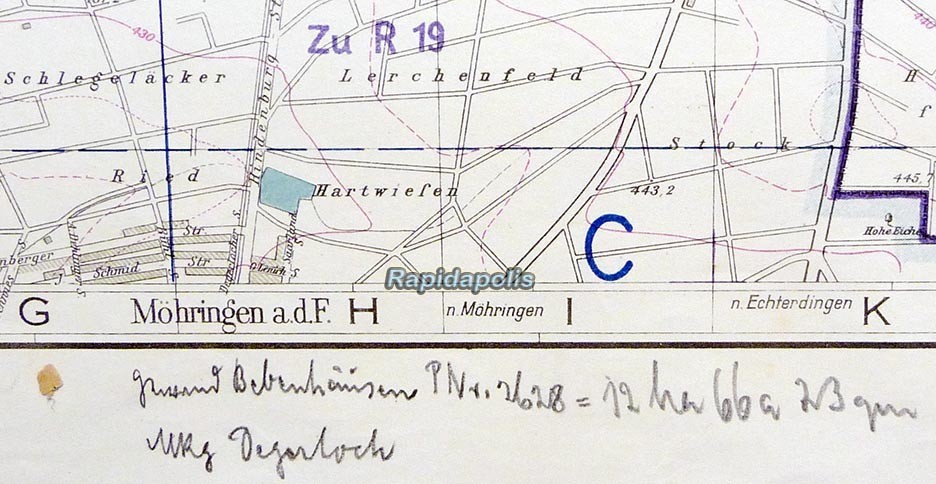 430
Zu R 19
440
Schlegeläcker
Lerchenfeld
H
f
Hindenburg St
Stock
Ried
Hartwiesen
443,2
445,7
Hohe Eiche
Str
nberger
Schmid
Str
C
Rapidapolis
G Möhringen a.d.F. H n. Möhringen I n. Echterdingen K
Gewand Bebenhäusen PNr. 2628 = 12 ha 66 a 23 qm
Mkg Degerloch